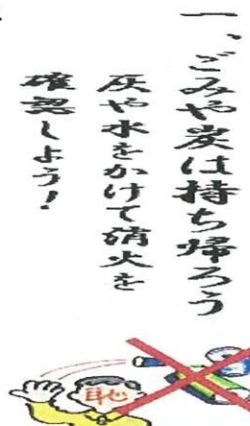 一、ごみや炭は持ち帰ろう
灰や水をかけて消火を
確認しよう！
恥